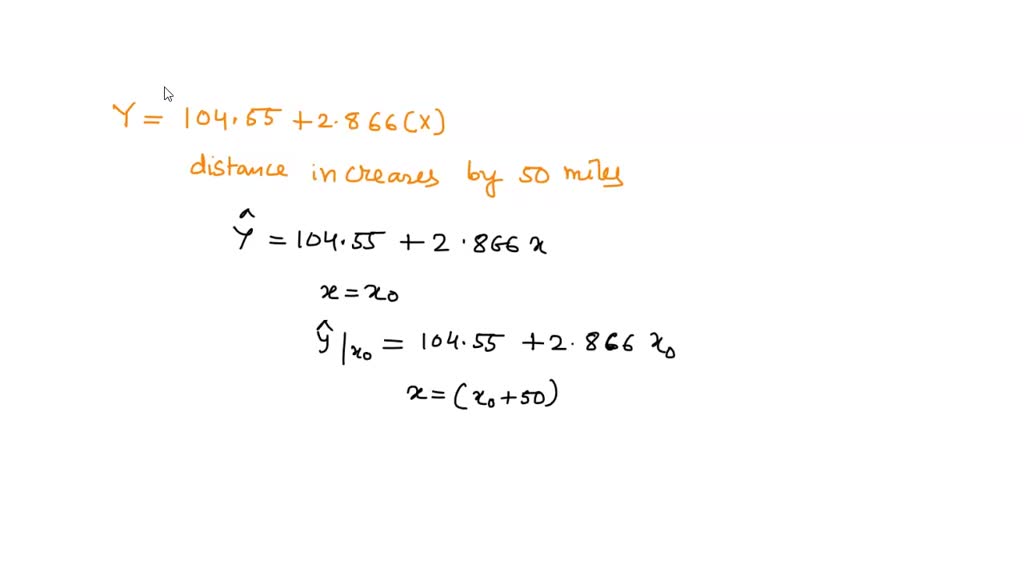 Y = 104.55 + 2.866(X)
distance increases by 50 miles
Ŷ = 104.55 + 2.866 x
x = x₀
ŷ|x₀ = 104.55 + 2.866 x₀
x = (x₀ + 50)